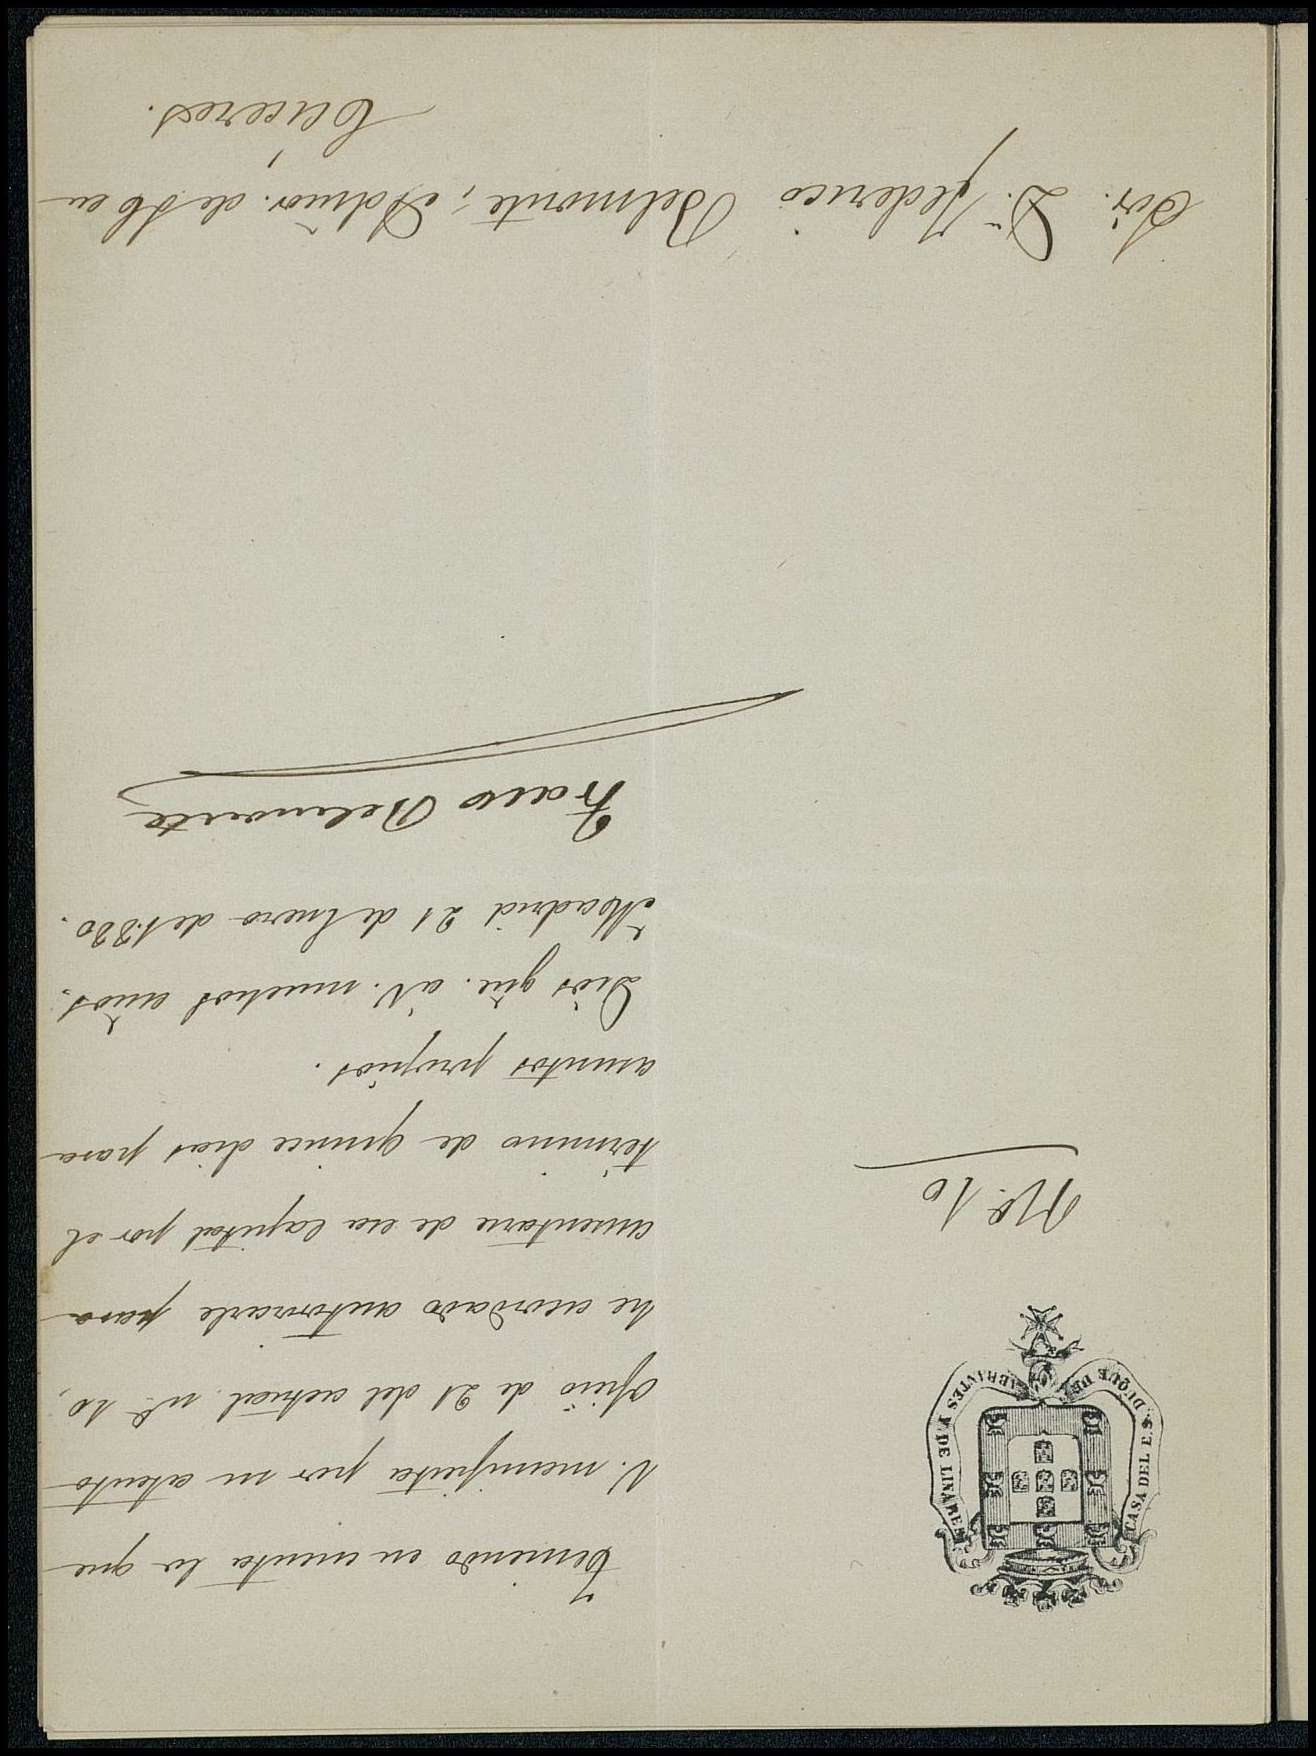 CASA DEL E.S. DUQUE DE ABRANTES Y DE LINARES
Nº. 10
Teniendo en cuenta lo que
V. manifiesta por su atento
oficio de 21 del actual nº 10,
he acordado autorizarle para
ausentarse de esa capital por el
término de quince dias para
asuntos propios.
Dios gūe. á V. muchos años.
Madrid 21 de Enero de 1.880.
Franco Belmonte
Sōr. Dn. Federico Belmonte, Admōr. de SE en
Cáceres.